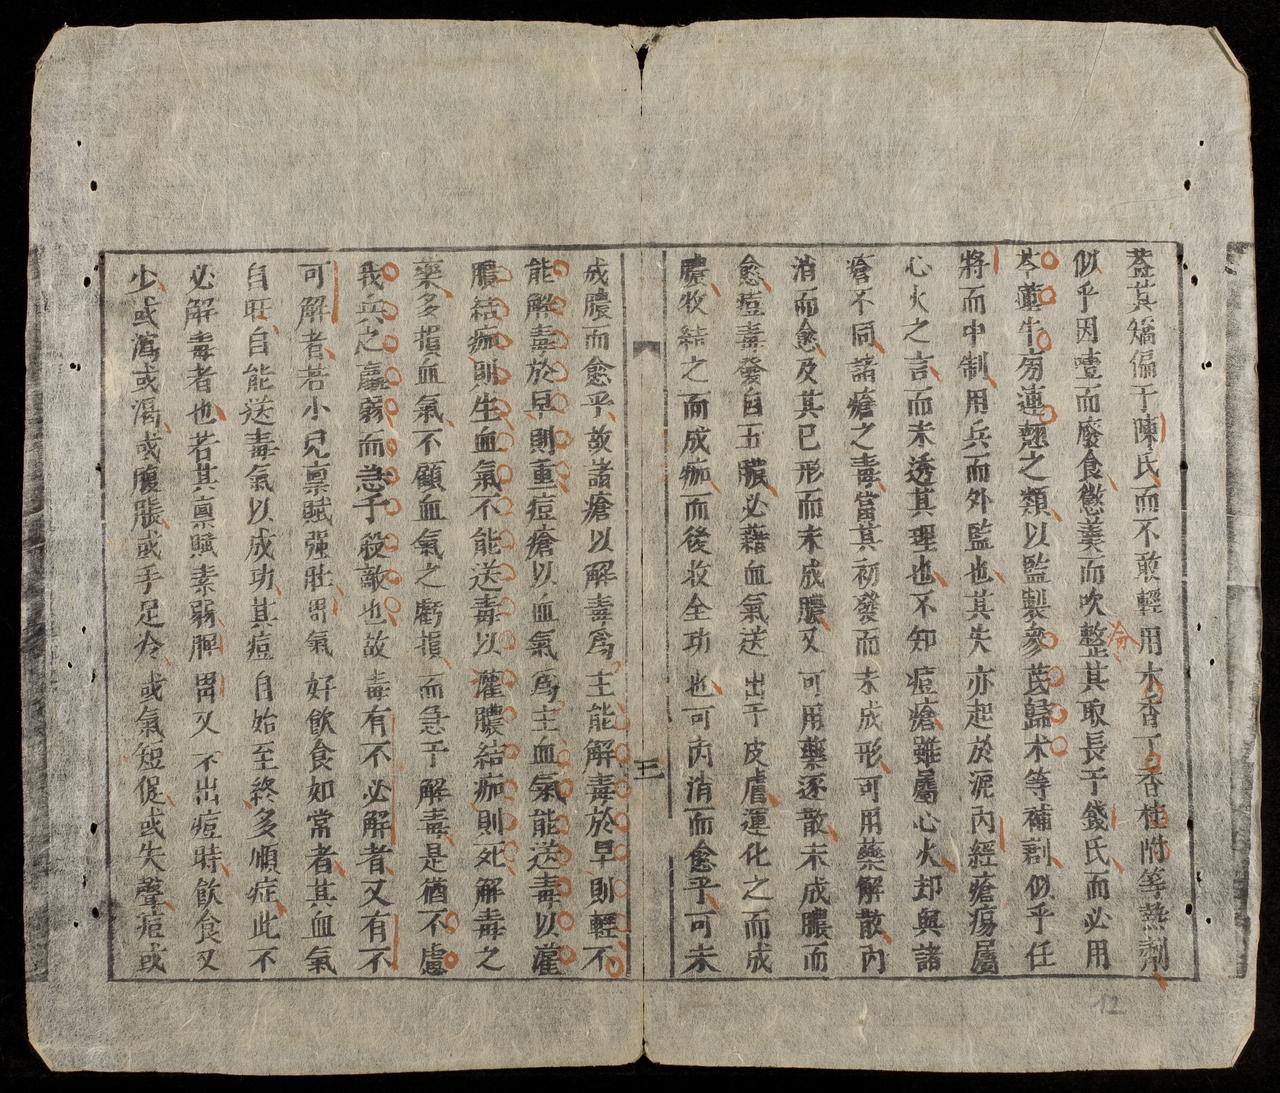 盖其矯偏于陳氏而不敢輕用木香丁香桂附等熱劑
似乎因噎而廢食懲羹而吹整其取長于錢氏而必用
芩蓮牛旁連翹之類以監製參茋歸术等補劑似乎任
將而中制用兵而外監也其失亦起於泥內經瘡瘍屬
心火之言而未透其理也不知痘瘡雖屬心火却與諸
瘡不同諸瘡之毒當其初發而未成形可用藥解散內
消而愈及其已形而未成膿又可用藥逐散未成膿而
愈痘毒發自五臟必藉血氣送出于皮膚運化之而成
膿收結之而成痂而後收全功也可內消而愈乎可未
三
成膿而愈乎故諸瘡以解毒爲主能解毒於早則輕不
能解毒於早則重痘瘡以血氣爲主血氣能送毒以灌
膿結痂則生血氣不能送毒以灌膿結痂則死解毒之
藥多損血氣不顧血氣之虧損而急于解毒是猶不慮
我兵之羸弱而急于殺敵也故毒有不必解者又有不
可解者若小兒禀賦强壯胃氣好飲食如常者其血氣
自旺自能送毒氣以成功其痘自始至終多順症此不
必解毒者也若其禀賦素弱脾胃又不出痘時飲食又
少或瀉或渴或腹脹或手足冷或氣短促或失聲痘或
令
12